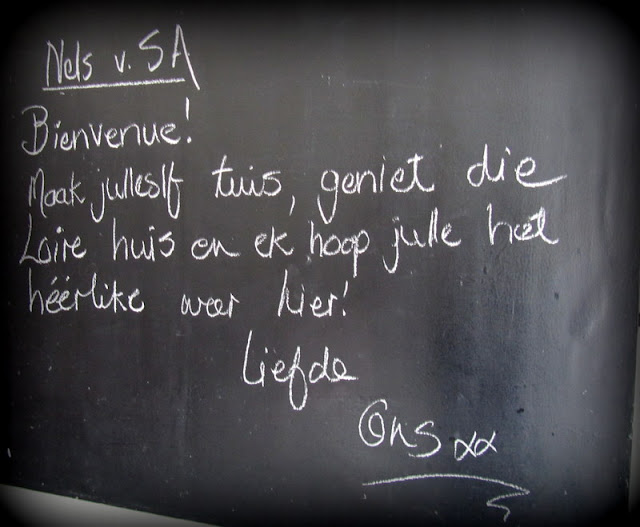 Nels v. SA
Bienvenue!
Maak julleslf tuis, geniet die
Loire huis en ek hoop julle het
héérlike weer hier!
Liefde
Ons xx